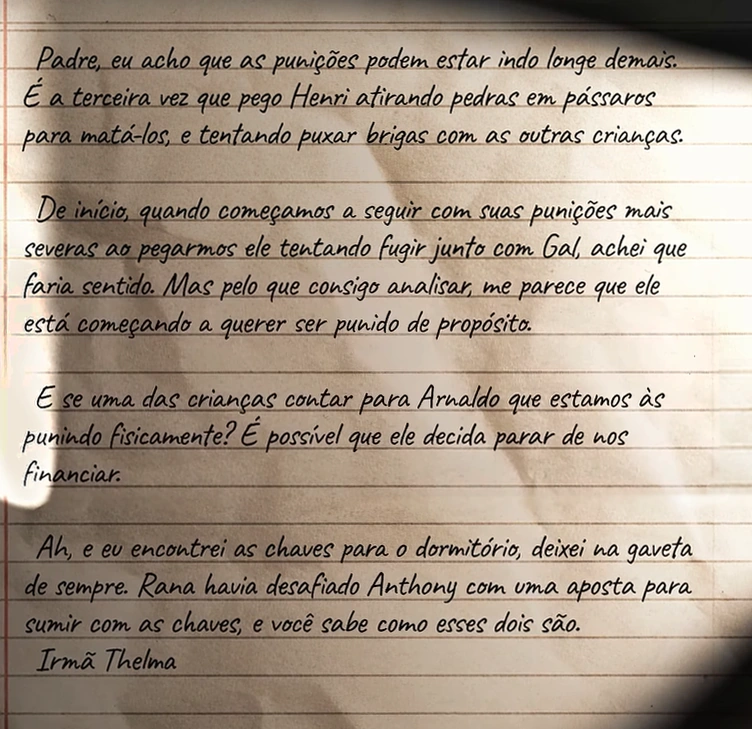 Padre, eu acho que as punições podem estar indo longe demais.
É a terceira vez que pego Henri atirando pedras em pássaros
para matá-los, e tentando puxar brigas com as outras crianças.
De início, quando começamos a seguir com suas punições mais
severas ao pegarmos ele tentando fugir junto com Gal, achei que
faria sentido. Mas pelo que consigo analisar, me parece que ele
está começando a querer ser punido de propósito.
E se uma das crianças contar para Arnaldo que estamos às
punindo fisicamente? É possível que ele decida parar de nos
financiar.
Ah, e eu encontrei as chaves para o dormitório, deixei na gaveta
de sempre. Rana havia desafiado Anthony com uma aposta para
sumir com as chaves, e você sabe como esses dois são.
Irmã Thelma